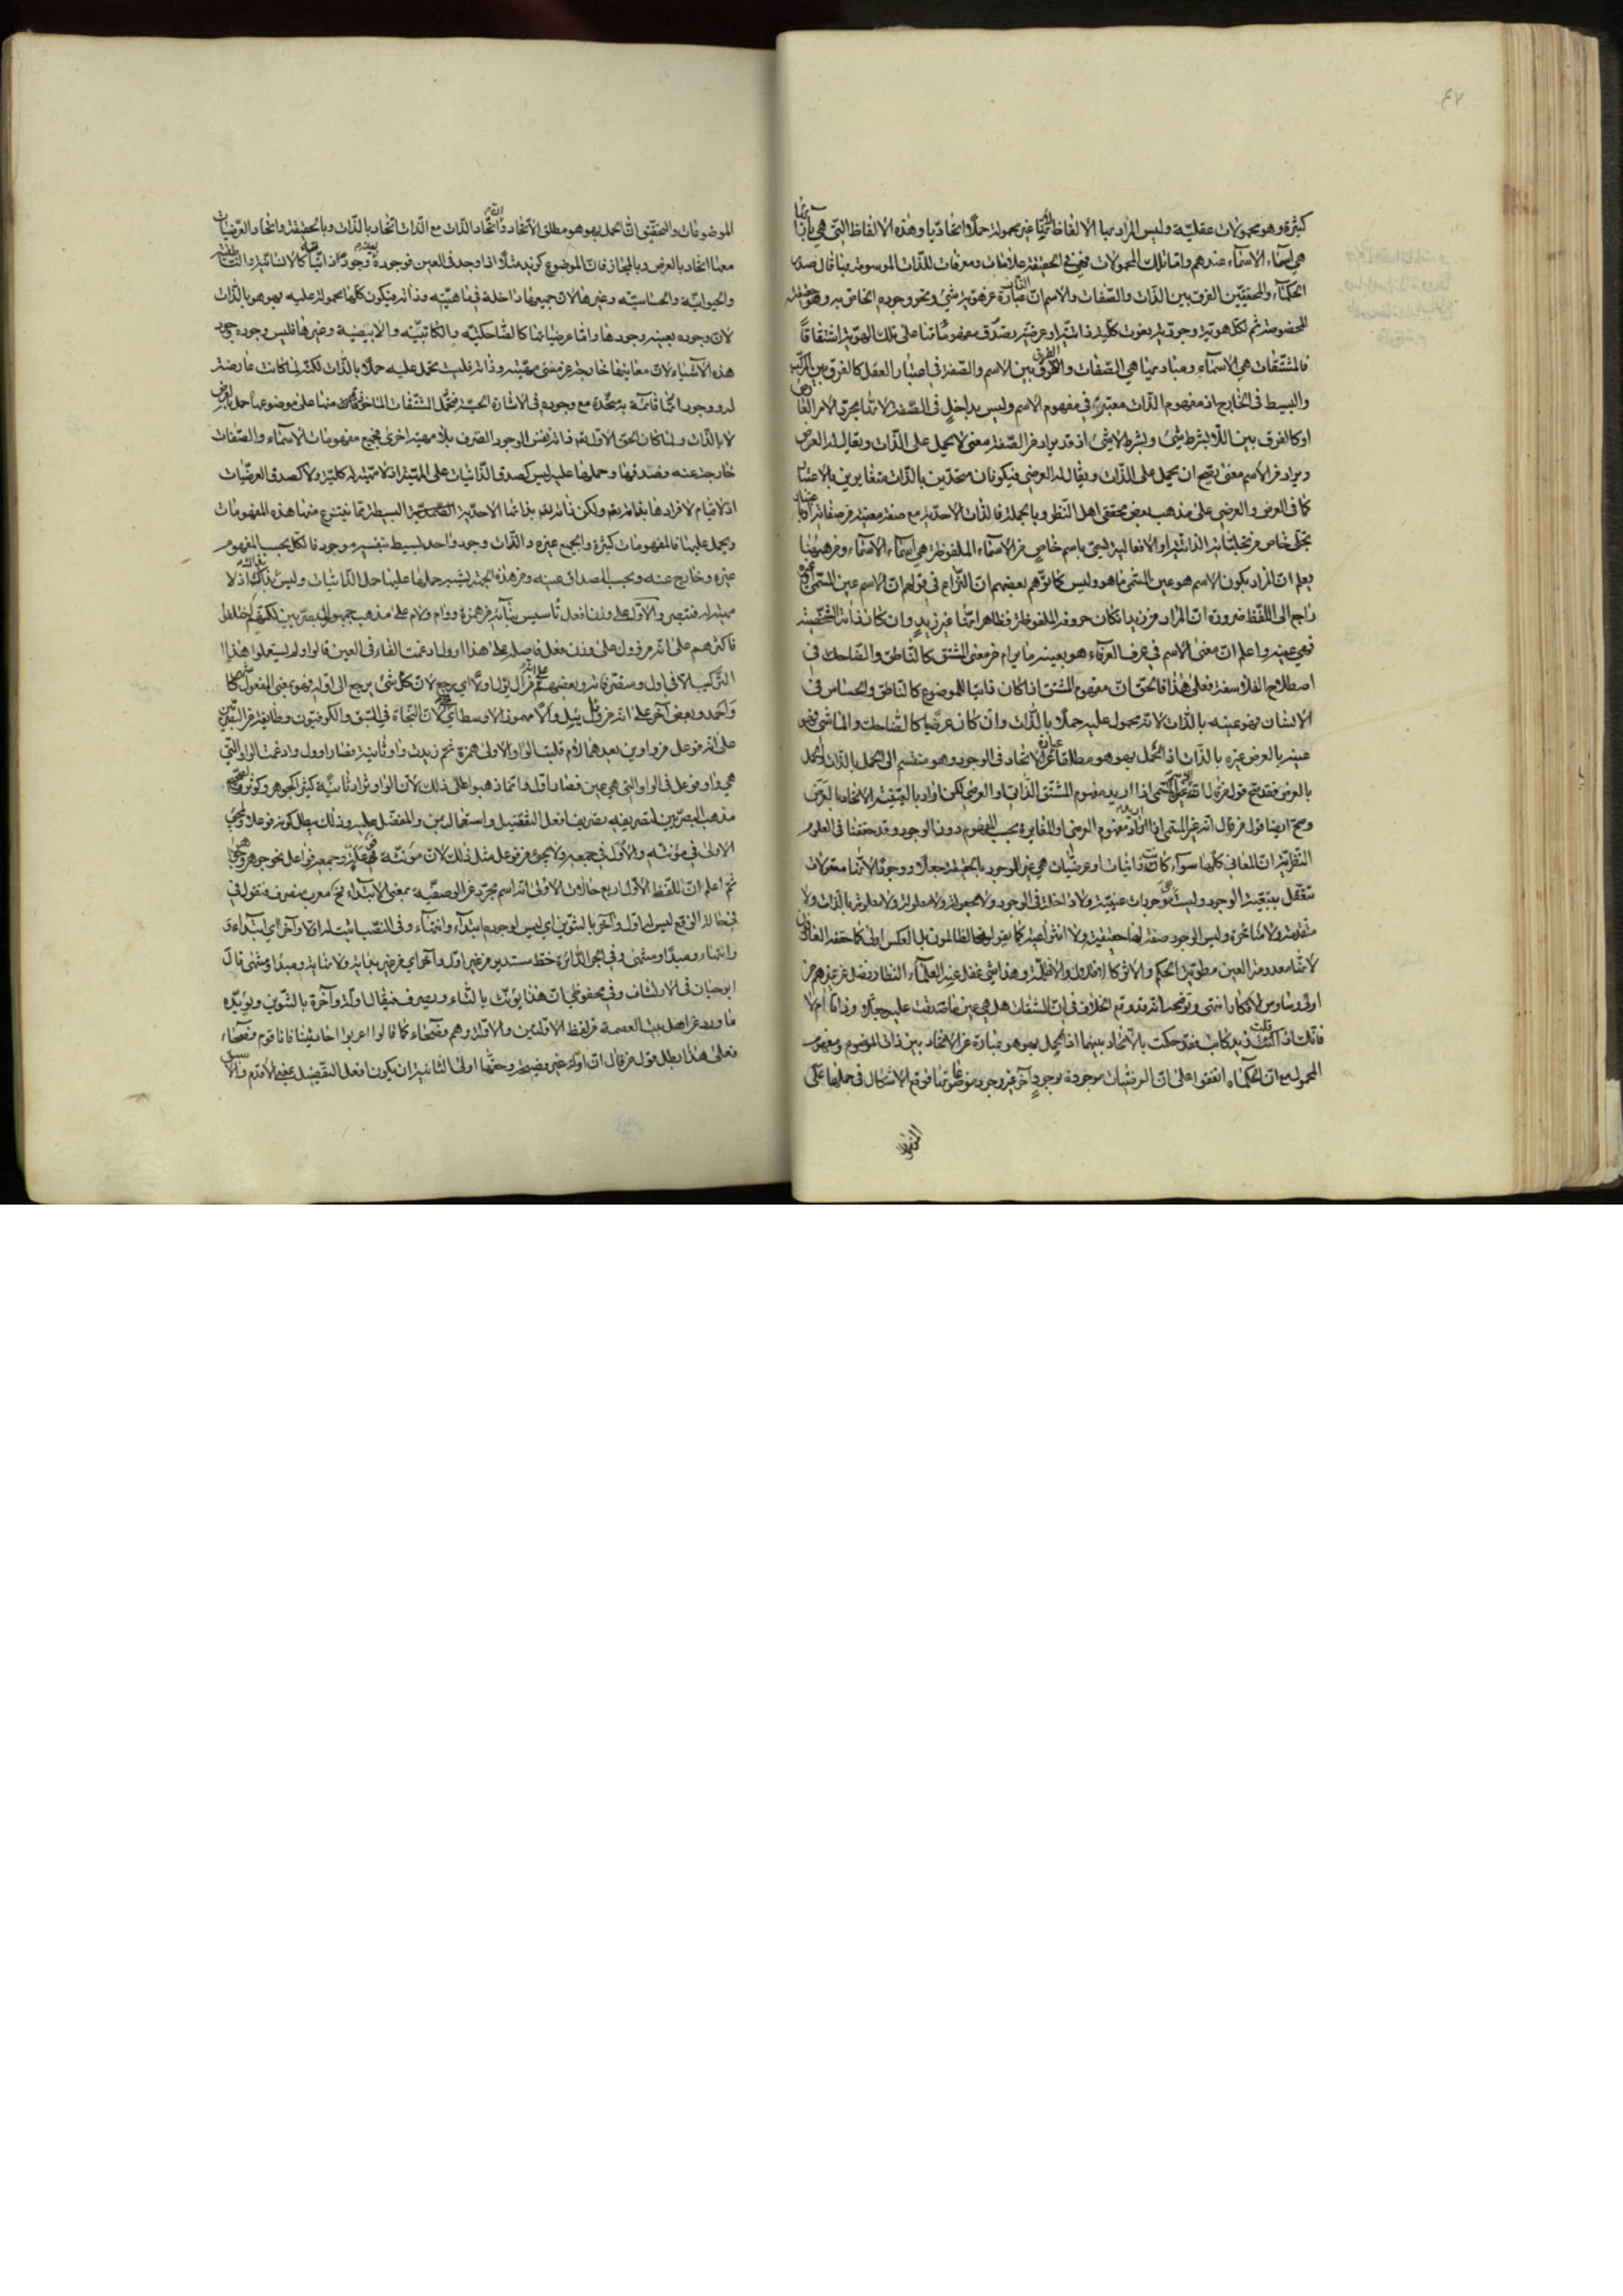 كثيرة وهو محمولات عقلية وليس المراد بها الالفاظ لانها غير محمولة حملا اتحاديا وهذه الالفاظ التي هي بازائها
هي اسماء الاسماء عندهم واما تلك المحمولات فهي في الحقيقة علامات ومعرفات للذات الموسومة بها قال صدر
الحكماء والمحققين الفرق بين الذات والصفات والاسم ان الذات عبارة عن هوية شيء ونحو وجوده الخاص به وهو حقيقته
المخصوصة ثم لكل هوية وجودية نعوت كلية ذاتية او عرضية يصدق مفهوماتها على تلك الهوية اشتقاقا
فالمشتقات هي الاسماء ومباديها هي الصفات والفرق بين الاسم والصفة في اعتبار العقل كالفرق بين المركب
والبسيط في الخارج اذ مفهوم الذات معتبر في مفهوم الاسم وليس بداخل في الصفة لانها مجرد الامر العارض
او كالفرق بين اللا بشرط شيء وبشرط لا شيء اذ قد يراد من الصفة معنى لا يحمل على الذات ويقال له العرض
ويراد من الاسم معنى يصح ان يحمل على الذات ويقال له العرضي فيكونان متحدين بالذات متغايرين بالاعتبار
كما في العرض والعرضي على مذهب بعض محققي اهل النظر وبالجملة فالذات الاحدية مع صفة معينة من صفاته او باعتبار
تجلى خاص من تجلياته الذاتية او الافعالية تسمى باسم خاص من الاسماء الملفوظة هي اسماء الاسماء ومن هيهنا
يعلم ان المراد بكون الاسم هو عين المسمى ما هو وليس كما توهم بعضهم ان النزاع في قولهم ان الاسم عين المسمى او غيره
راجع الى اللفظ ضرورة ان المراد من زيد ان كان حروفه الملفوظة فظاهر انها غير زيد وان كان ذاته المشخصة
فهي عينه واعلم ان معنى الاسم في عرف العرفاء هو بعينه ما يرام من معنى المشتق كالناطق والضاحك في
اصطلاح الفلاسفة فعلى هذا فالحق ان مفهوم المشتق اذا كان ذاتيا للموضوع كالناطق والحساس في
الانسان فهو عينه بالذات لانه محمول عليه حملا بالذات وان كان عرضيا كالضاحك والماشي فهو
عينه بالعرض غيره بالذات اذ الحمل بهو هو مطلقا عبارة عن الاتحاد في الوجود وهو منقسم الى الحمل بالذات والحمل
بالعرض فقد صح قول من قال انه عين المسمى اذا اريد مفهوم المشتق الذاتي او العرضي لكن اراد بالعينية الاتحاد بالعرض
وصح ايضا قول من قال انه غير المسمى اذا اراد به مفهوم العرضي او المغايرة بحسب المفهوم دون الوجود وقد حققنا في العلوم
النظرية ان المعاني كلها سواء كانت ذاتيات او عرضيات هي غير الوجود بالحقيقة جعلا ووجودا لانها معقولات
تتعقل بتبعية الوجود وليست موجودات عينية ولا داخلة في الوجود ولا مجعولة ولا معلولة ولا معلومة بالذات ولا
متقدمة ولا متاخرة وليس الوجود صفة لها حقيقية ولا انتزاعية كما يقوله الظالمون بل بالعكس اولى كما حققه العارفون
لانها معدومة العين مطوية الحكم والاثر كالاظلال والاظلة وهذا شيء غفل عنه العلماء النظار فضلا عن غيرهم من
اولى وساوس الافكار انتهى وتوضيحه انه قد وقع الخلاف في ان المشتقات هل هي عين ما صدقت عليه جعلا وذاتا ام لا
فانك اذا قلت زيد كاتب فقد حكمت بالاتحاد بينهما اذ الحمل بهو هو عبارة عن الاتحاد بين ذات الموضوع ومفهوم
المحمول مع ان الحكماء اتفقوا على ان العرضيات موجودة بوجود آخر غير وجود موضوعاتها فوقع الاشكال في حملها على
الموضوعات
الموضوعات والتحقيق ان الحمل بهو هو مطلق الاتحاد واتحاد الذات مع الذات اتحاد بالذات وبالحقيقة واتحاد العرضيات
معها اتحاد بالعرض وبالمجاز فان الموضوع كزيد مثلا اذا وجد في العين فوجوده بعينه وجود لذاتياته كالانسانية والناطقية
والحيوانية والحساسية وغيرها لان جميعها داخلة في ماهيته وذاته فيكون كلها محمولة عليه بهو هو بالذات
لان وجوده بعينه وجودها واما عرضياتها كالضاحكية والكاتبية والابيضية وغيرها فليس وجوده وجود
هذه الاشياء لان معانيها خارجة عن معنى مهيته وذاته فليست تحمل عليه حملا بالذات لكنه لما كانت عارضة
له ووجوداتها قائمة به متحدة مع وجوده في الاشارة الحسية فتحمل المشتقات الماخوذة منها على موضوعها حملا بالعرض
لا بالذات ولما كان الحق الاول تعم ذاته نفس الوجود الصرف بلا مهية اخرى فجميع مفهومات الاسماء والصفات
خارجة عنه وصدقها وحملها عليه ليس كصدق الذاتيات على المهية اذ لا مهية له كلية ولا كصدق العرضيات
اذ لا قيام لافرادها بذاته تعم ولكن ذاته تعم بذاتها الاحدية البسيطة مما ينتزع منها هذه المفهومات
ويحمل عليها فالمفهومات كثيرة والجميع غيره والذات وجود واحد بسيط بنفسه موجود فالكل بحسب المفهوم
غيره وخارج عنه وبحسب المصداق عينه ومن هذه الجهة يشبه حملها عليها حمل الذاتيات وليس بذاك اذ لا
مهية له فتبصر والاول على وزن افعل تأسيس بنائه من همزة وواو ولام على مذهب جمهور البصريين لكنهم اختلفوا
فاكثرهم على انه من وول على وزن فعل فاصله على هذا اوول ادغمت الفاء في العين قالوا ولم يستعملوا هذا
التركيب الا في اول ومتصرفاته وبعضهم على انه من آل يؤل اولا اي رجع لان كل شيء يرجع الى اوله فهو بمعنى المفعول كاشهر
واحمد وبعض آخر على انه من وأل يئل وألا مهموز الاوسط اي نجى لان النجاة في السبق والكوفيون وطائفة من البصريين
على انه فوعل من واوين بعدهما لام فقلبت الواو الاولى همزة ثم زيدت واو ثانية فصار اوول وادغمت الواو التي
هي واو فوعل في الواو التي هي عين فصار اول وانما ذهبوا على ذلك لان الواو تزاد ثانية كثير الجوهر وكوثر والصحيح
مذهب البصريين لتصريفه تصريف افعل التفضيل واستعماله بمن والمفضل عليه وذلك يبطل كونه فوعلا ولمجيء
الاولى في مؤنثه والاول في جمعه ولا يجيء من فوعل مثل ذلك لان مؤنثه فوعلة وجمعه فواعل نحو جوهر وجواهر
ثم اعلم ان للفظ الاول اربع حالات الاولى انه اسم مجرد عن الوصفية بمعنى الابتداء نحو معرب منصرف فتقول في
حالة الرفع ليس له اول وآخر بالتنوين اي ليس لوجوده ابتداء وانتهاء وفي النصب اثبت له اولا وآخرا اي ابتداء و
وانتهاء ومبدأ ومنتهى وفي الجر الدائرة خط مستدير من غير اول وآخر اي من غير بداية ولا نهاية ومبدأ ومنتهى قال
ابو حيان في الارتشاف وفي محفوظي ان هذا يؤنث بالتاء ويصرف فيقال اولة وآخرة بالتنوين ويؤيده
ما ورد عن اهل بيت العصمة من لفظ الاولتين والاولة وهم فصحاء كما قالوا اعربوا احاديثنا فانا قوم فصحاء
فعلى هذا بطل قول من قال ان اولة غير فصيحة وحقها اولى الثانية ان يكون افعل التفضيل بمعنى الاقدم والاسبق